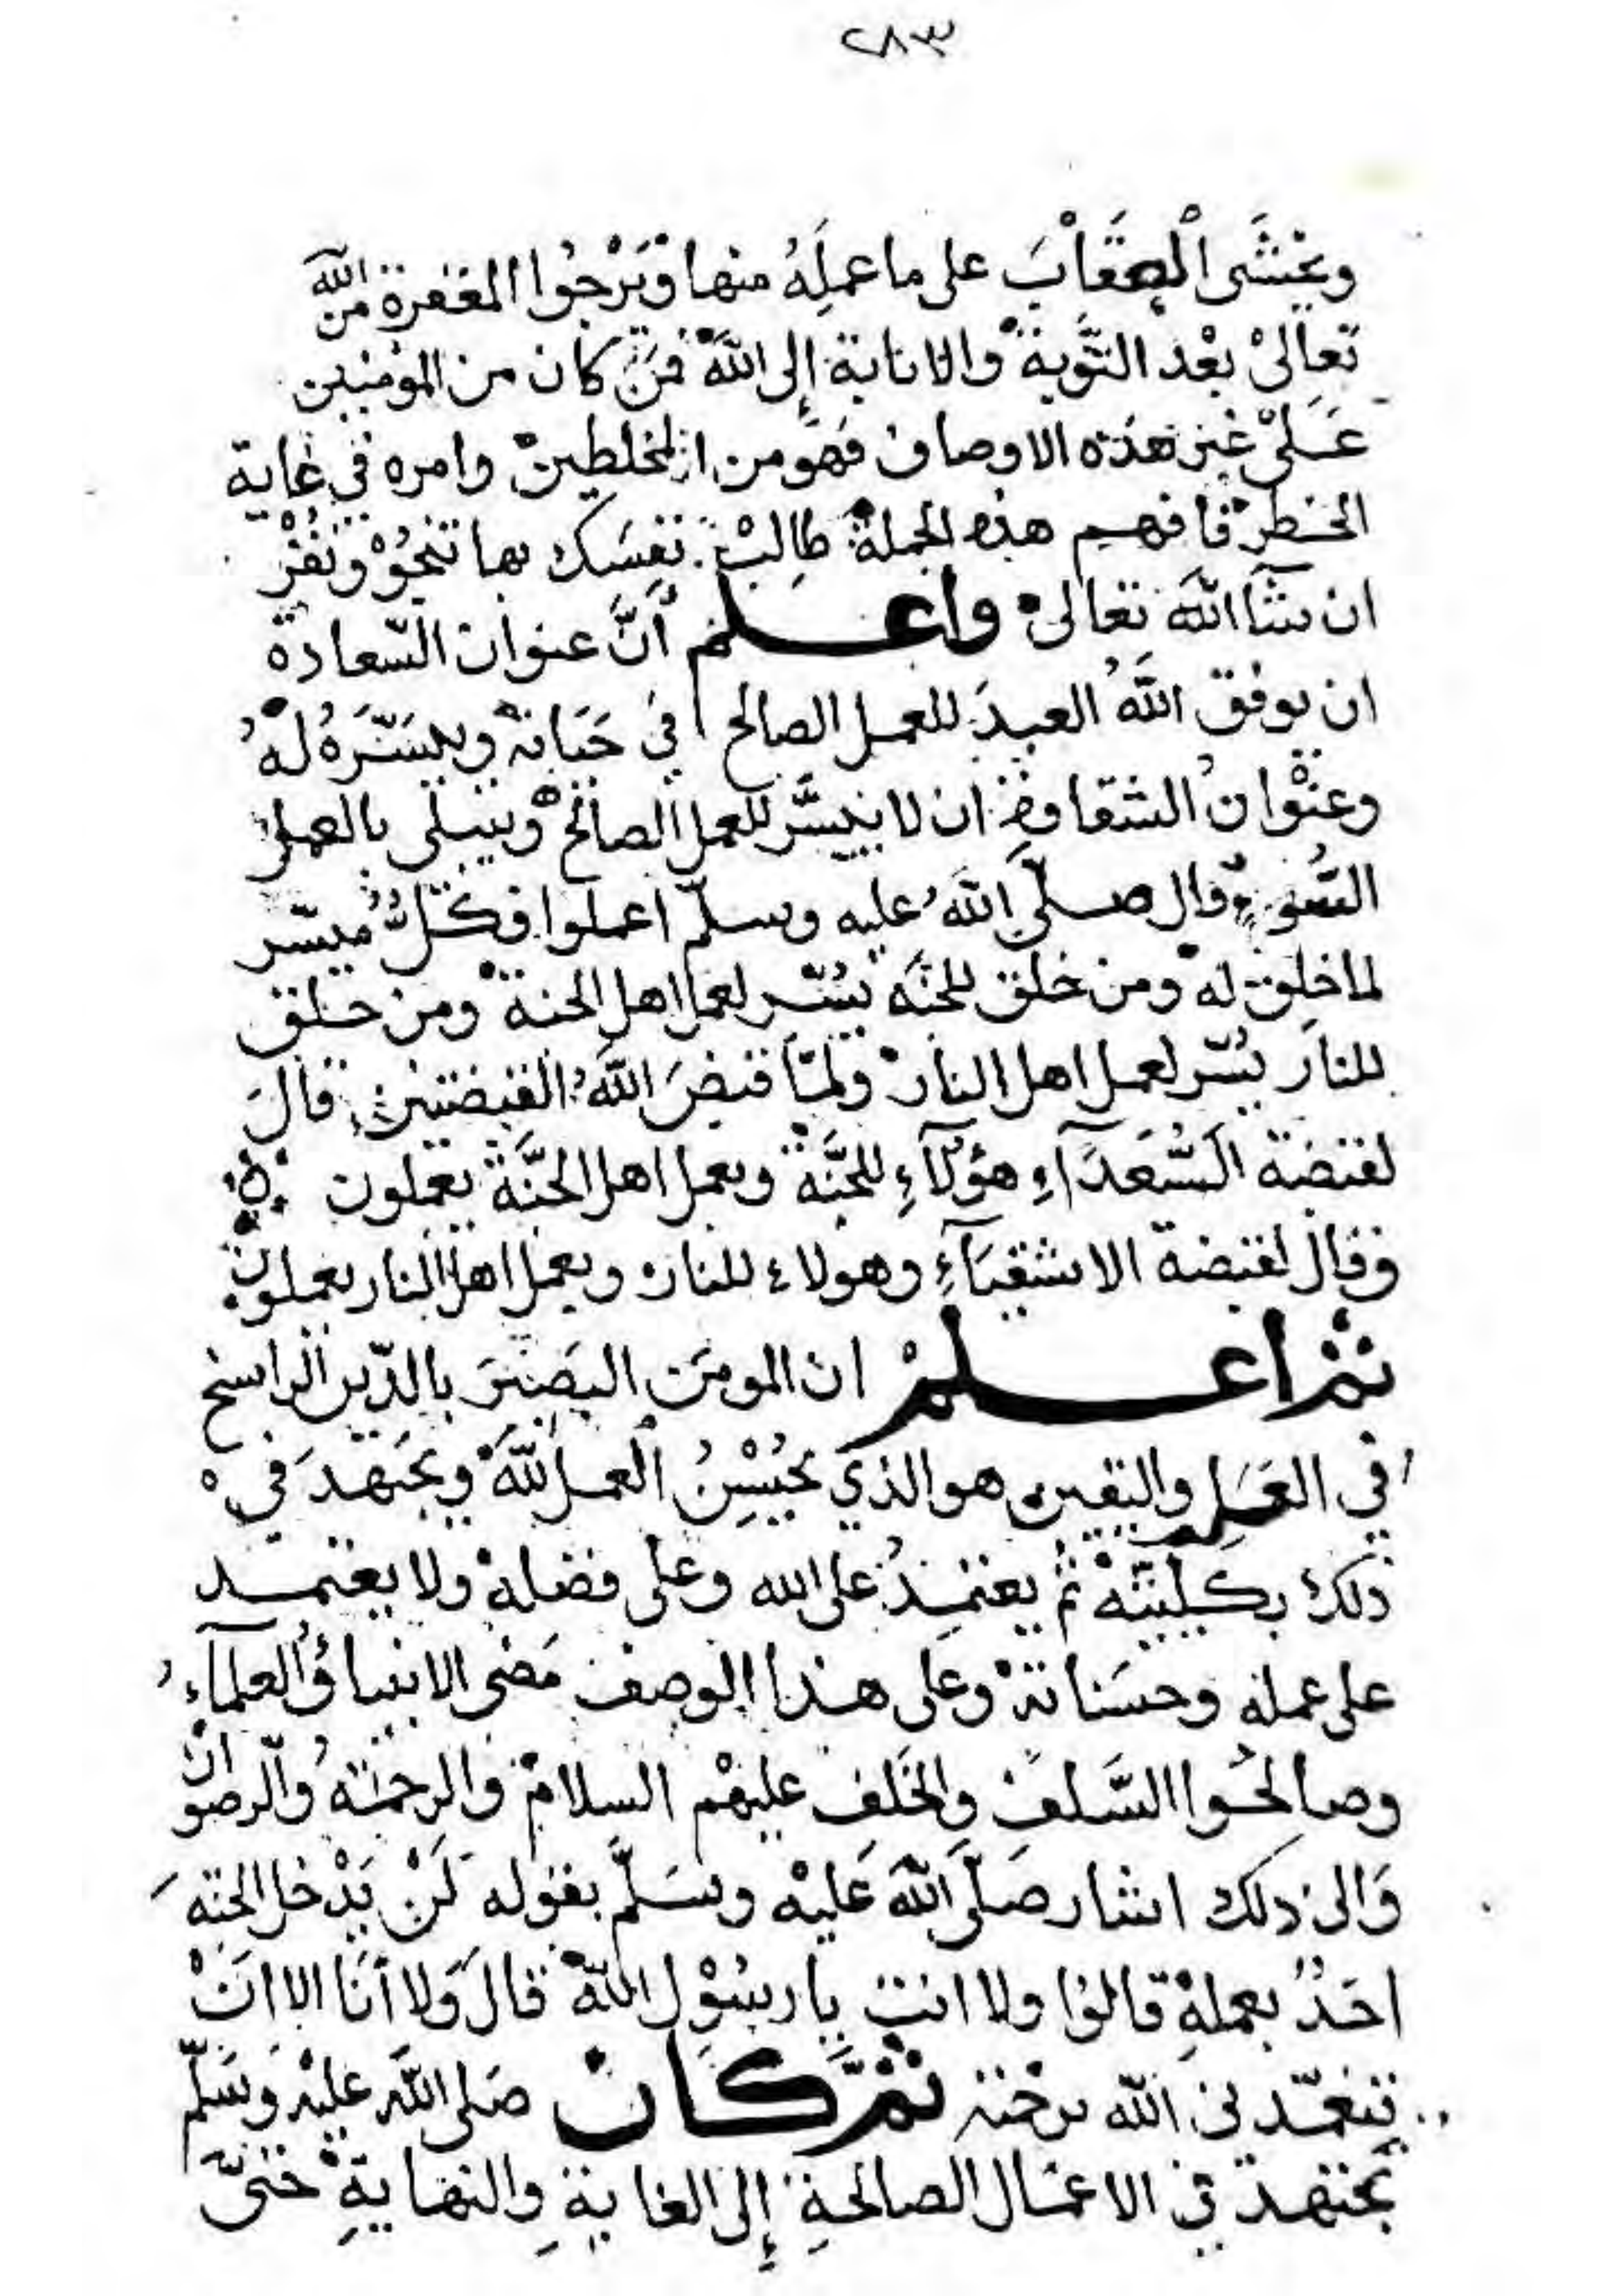 ٢٨٣
ويخشَى العِقَابَ على ما عملَهُ منها ويَرْجُوا المغفرة من الله
تعالىْ بعْد التَّوبة والانابة إلى اللّه فمَن كان من المؤمنين
عَلىْ غير هذه الاوصاف فهو من المخلطين وامره في غاية
الخطر فافهم هذه الجملة طالِبْ نفسَك بها تنجُوْ وتفُزْ
ان شآ اللّه تعالى واعلم أنَّ عنوان السّعادة
ان يوفق اللّهُ العبدَ للعمل الصالح في حَيَاته وييسّرَهُ لهُ
وعنْوانُ الشقاوة ان لا ييسَّر للعمل الصالح ويبتلى بالعمل
السُّوء قال صلّى اللّه عليه وسلّم اعملوا فكلٌّ ميسّر
لما خلِق له ومن خلق للجنَّة يُسّر لعمل اهل الجنة ومن خلق
للنار يُسّر لعمل اهل النار ولمّا قبضَ اللّهُ القبضتين قالَ
لقبضة السُّعَدَآءِ هؤلآءِ للجنَّة وبعمل اهل الجنَّة يعملون
وقال لقبضة الاشقيَآءِ وهولاء للنار وبعمل اهل النار يعملون
ثم اعلمْ ان المومنَ البَصيْرَ بالدّين الراسخ
في العلم واليقين هو الذي يُحْسِنُ العمل للّه ويجتهدَ في
ذلك بكليّته ثم يعتمِدُ على الله وعلى فضله ولا يعتمد
على عمله وحسَناته وعَلى هذا الوصف مَضى الانبيا والعلمآءُ
وصالحُوا السَّلف والخَلَف عليهْم السلام والرحمة والرضوان
وَالى ذلك اشار صَلّى اللّه عَليْه وسَلّم بقوله لَنْ يَدْخل الجنّة
احَدٌ بعملهِ قالوا ولا انت يا رسُوْل اللّه قالَ وَلا أنَا الا انْ
يتغمّدني اللّه برحمته ثمَّ كان صَلى اللّه عليْه وسَلّم
يجتهد في الاعمَال الصالحةِ إلى الغايةِ والنهايةِ حَتىَّ